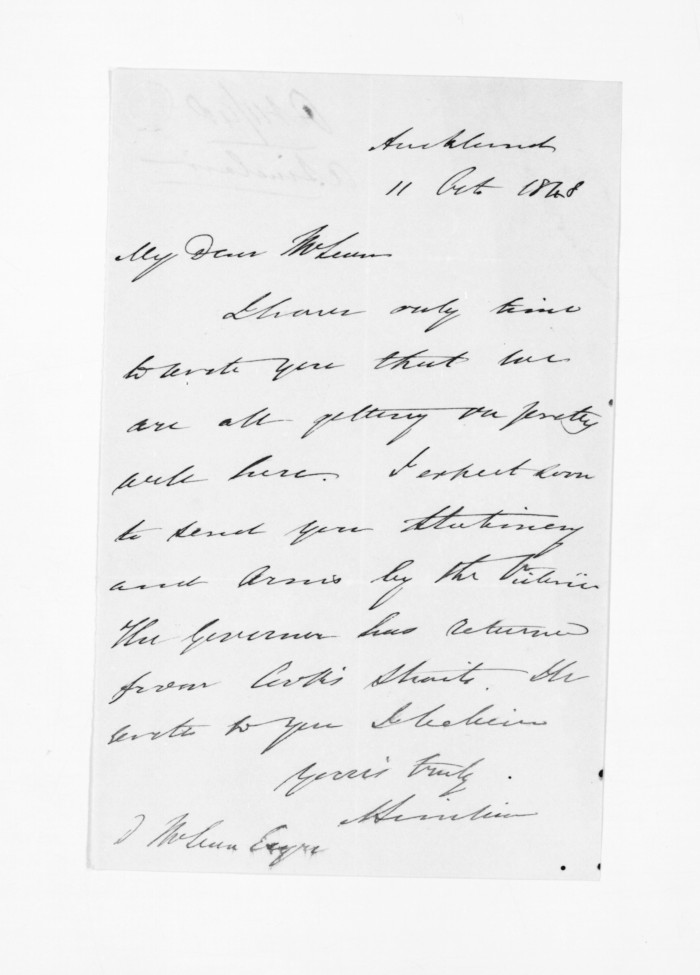 Auckland
11 Oct 1848
My Dear McLean
I have only time
to write you that we
are all getting on pretty
well here. I expect soon
to send you stationery
and Arms by the Victoria
The Governor has returned
from Cook's Straits. He
wrote to you I believe
yours truly.
A Sinclair
D McLean Esqre